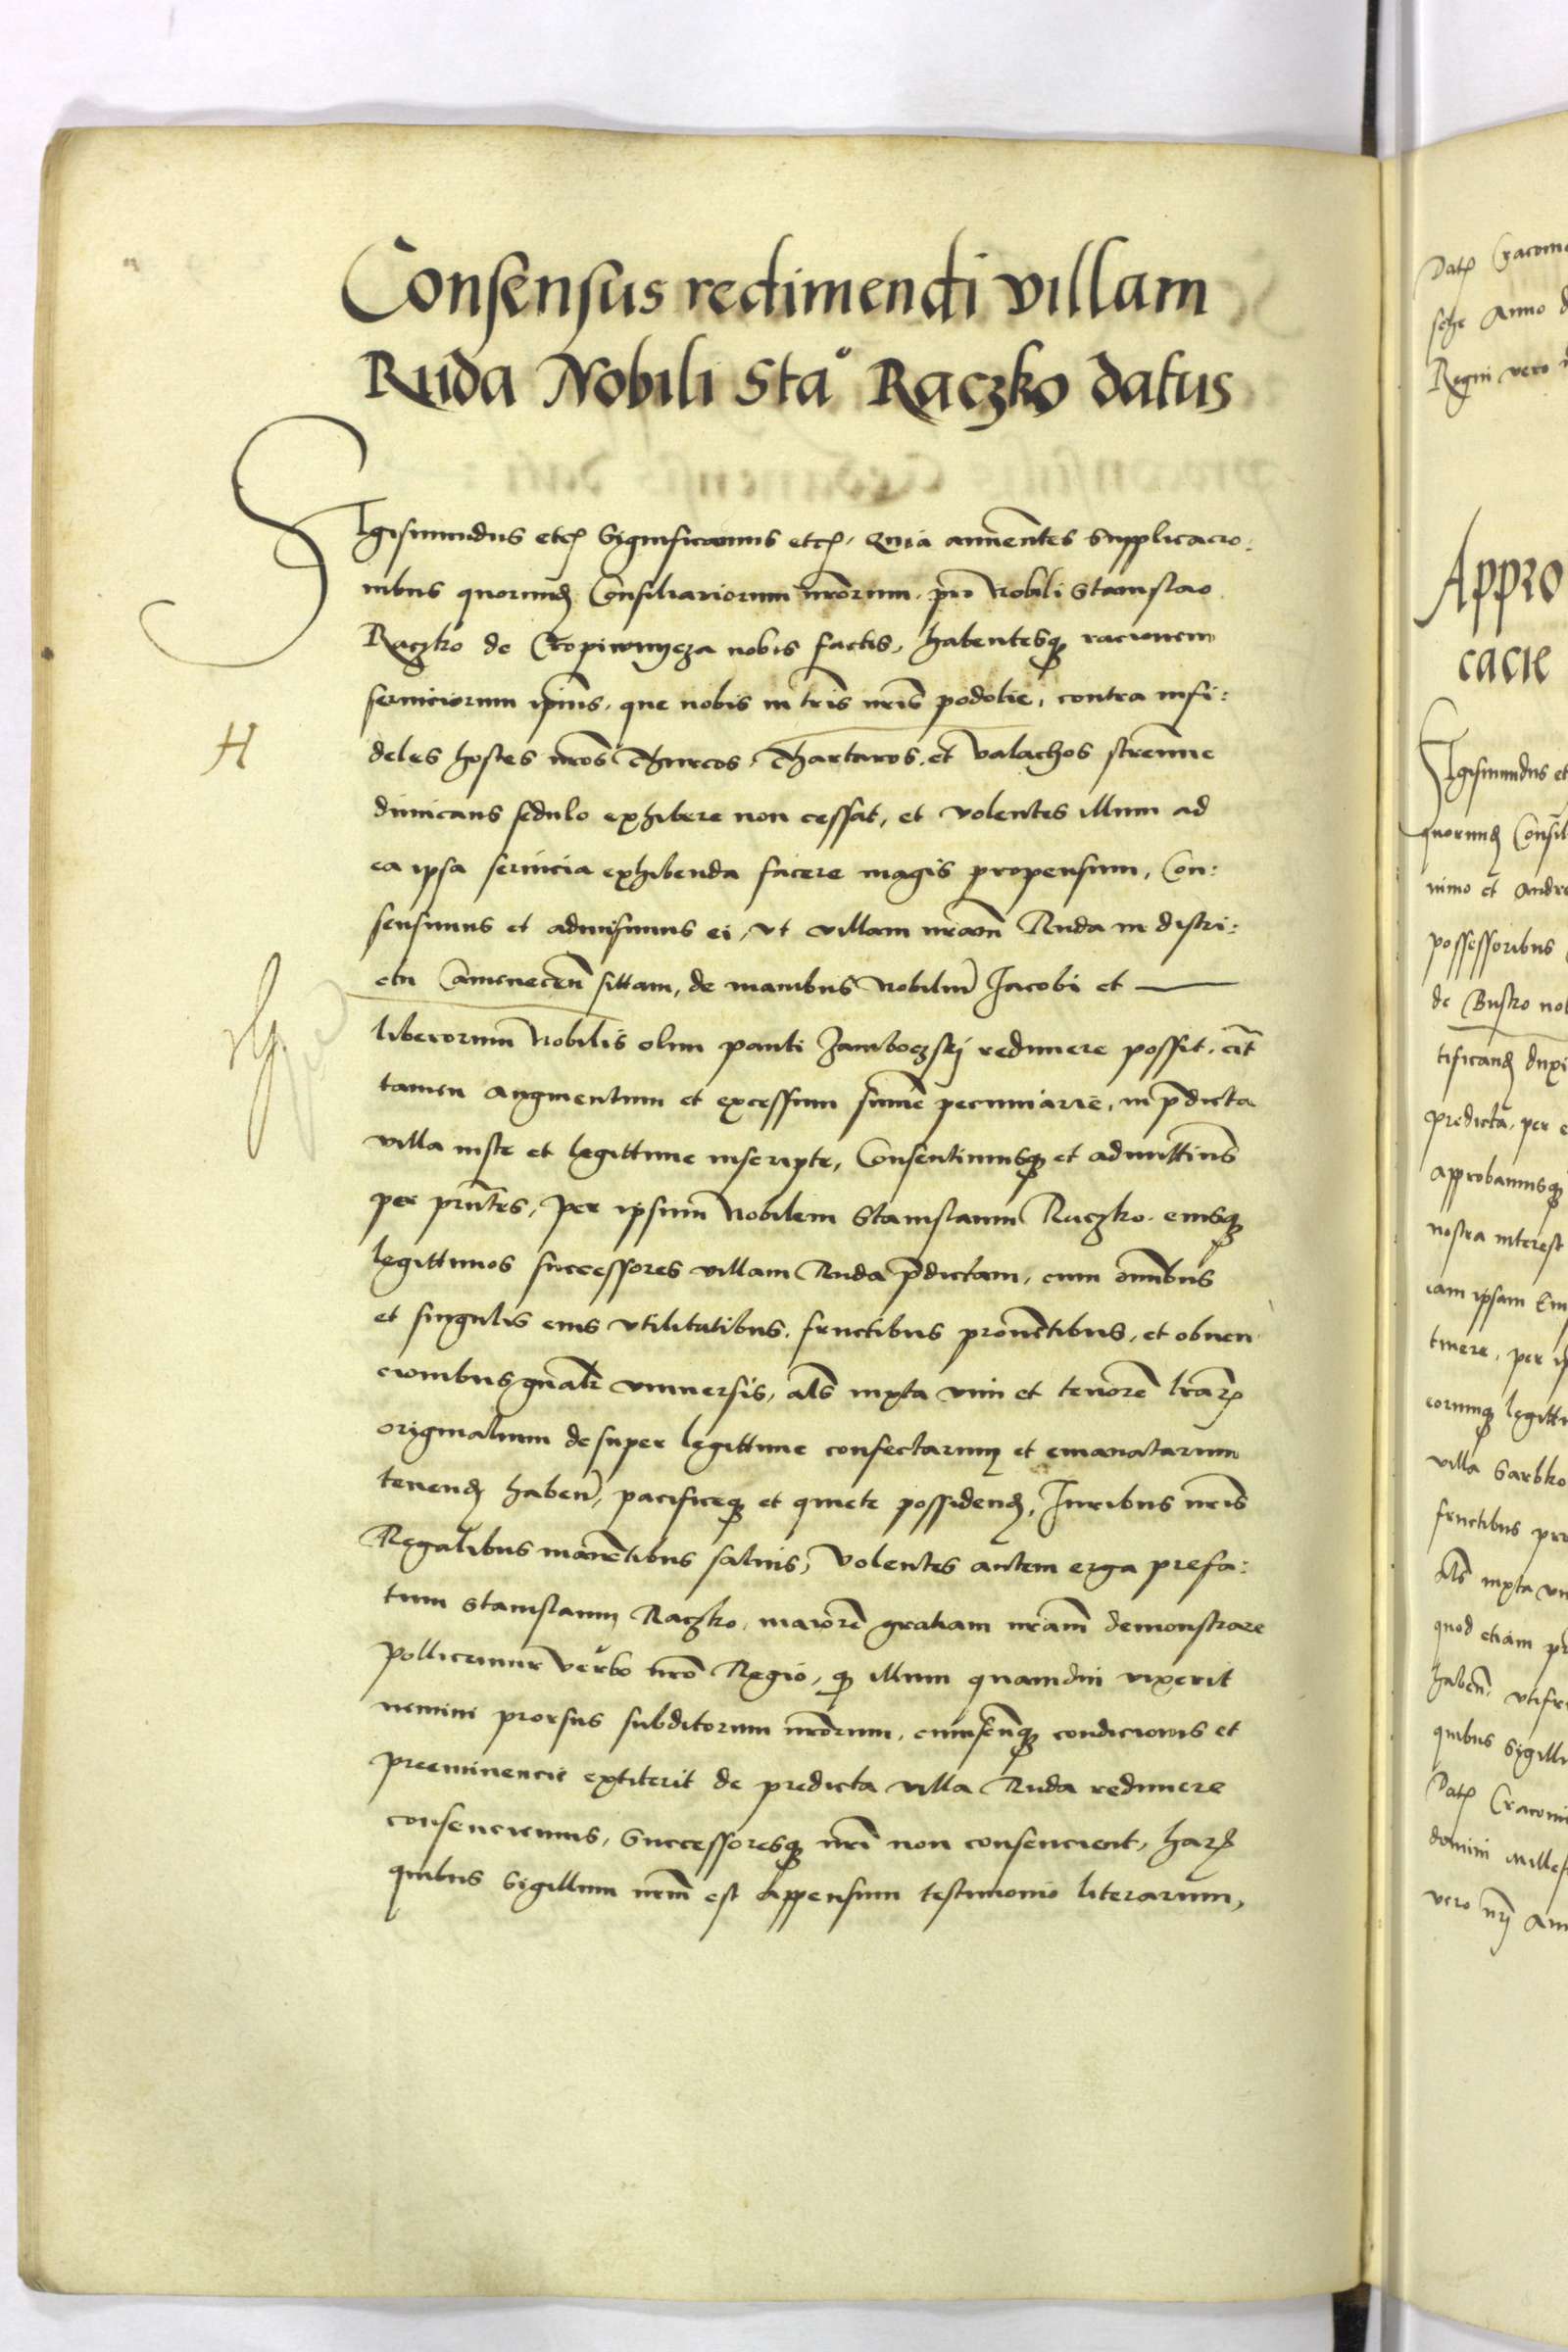 Consensus redimendi villam
Ruda Nobili Sta° Raczko datus
Sigismundus etcꝫ Significamus etcꝫ, Quia annuentes supplicacio:
nibus quorundꝫ Consiliariorum nrōrum, pro Nobili Stanislao
Raczko de nobis factis, habentesqꝫ racionem
serviciorum ipius, que nobis in tris nris podolie, contra infi:
H
deles hostes nros Thurcos, Thartaros, et Valachos strenue
dimicans sedulo exhibere non cessat, et volentes illum ad
ea ipsa servicia exhibenda facere magis propensum, Con:
sensimus et admisimus ei, ut villam nram Ruda in distri:
ctu Camenecen sittam, de manibus Nobiliu Jacobi et —
liberorum Nobilis olim pauli redimere possit,
tamen augmentum et excessum sume pecuniarie, in pdicta
villa iuste et legittime inscripte, Consentimusqꝫ et admittimus
per pntes, per ipsum Nobilem Stanislaum Raczko, eiusqꝫ
legittimos successores villam Ruda pdictam, cum omnibus
et singulis eius utilitatibus, fructibus proventibus, et obven
cionibus gnalr universis, als iuxta vim et tenorē lrarꝫ
originalium desuper legittime confectarum et emanatarum
tenendꝫ haben, pacificeqꝫ et quiete possidendꝫ, Iuribus nris
Regalibus manētibus salvis, Volentes autem erga prefa:
tum Stanislaum Raczko, maiorē gratiam nram demonstrare
Pollicemur Verbo nro Regio, qꝫ illum quamdiu vixerit
nemini prorsus subditorum nrorum, cuiuscunqꝫ condicionis et
preeminencie extiterit de predicta villa Ruda redimere
consenciemus, Successoresqꝫ nri non consencient, Harꝫ
quibus Sigillum nrm est appensum testimonio literarum,
Datꝫ
Anno
Regni vero
Appro
cacie
Sigismundus et
quorundꝫ
nimo et Andre
possessoribus
de
tificandꝫ duxi
predicta, per
approbamusqꝫ
nostra interest
iam ipsam
tinere, per
eorumqꝫ legitti
villa
fructibus pro
als iuxta
quod etiam
haben,
quibus Sigillu
Datꝫ
domini Milles
vero nri